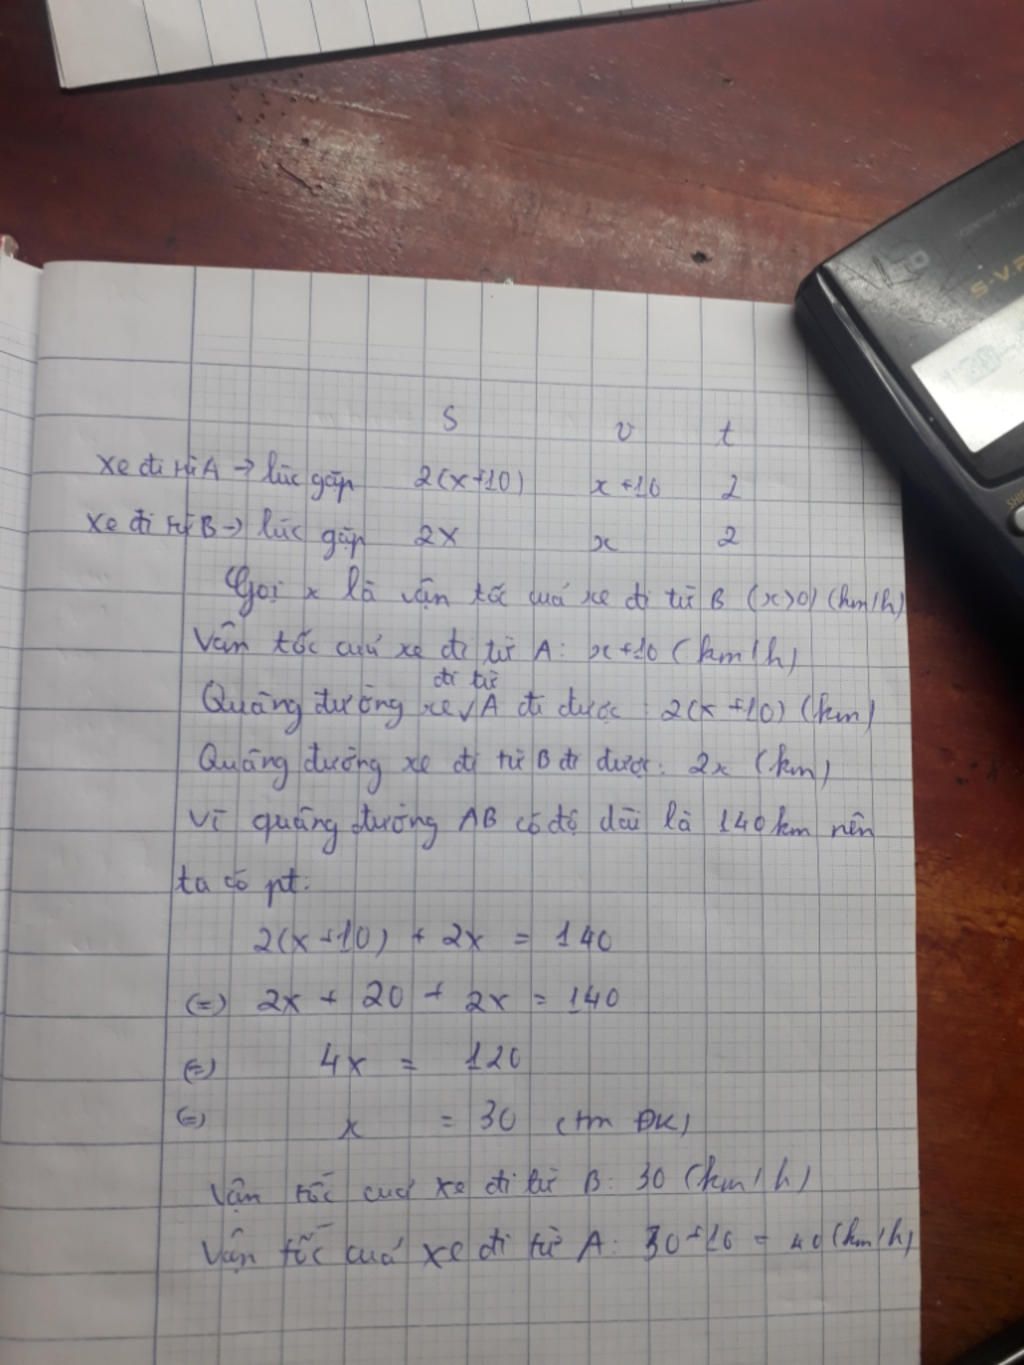 S v t
xe đi từ A → lúc gặp 2(x+10) x+10 2
xe đi từ B → lúc gặp 2x x 2
Gọi x là vận tốc cuả xe đi từ B (x>0) (km/h)
Vận tốc cuả xe đi từ A: x+10 (km/h)
đi từ
Quãng đường xe √ A đi được: 2(x+10) (km)
Quãng đường xe đi từ B đi được: 2x (km)
Vì quãng đường AB có độ dài là 140km nên
ta có pt:
2(x+10) + 2x = 140
(=) 2x + 20 + 2x = 140
(=) 4x = 120
(=) x = 30 (tm ĐK)
Vận tốc cuả xe đi từ B: 30 (km/h)
Vận tốc cuả xe đi từ A: 30+10 = 40 (km/h)